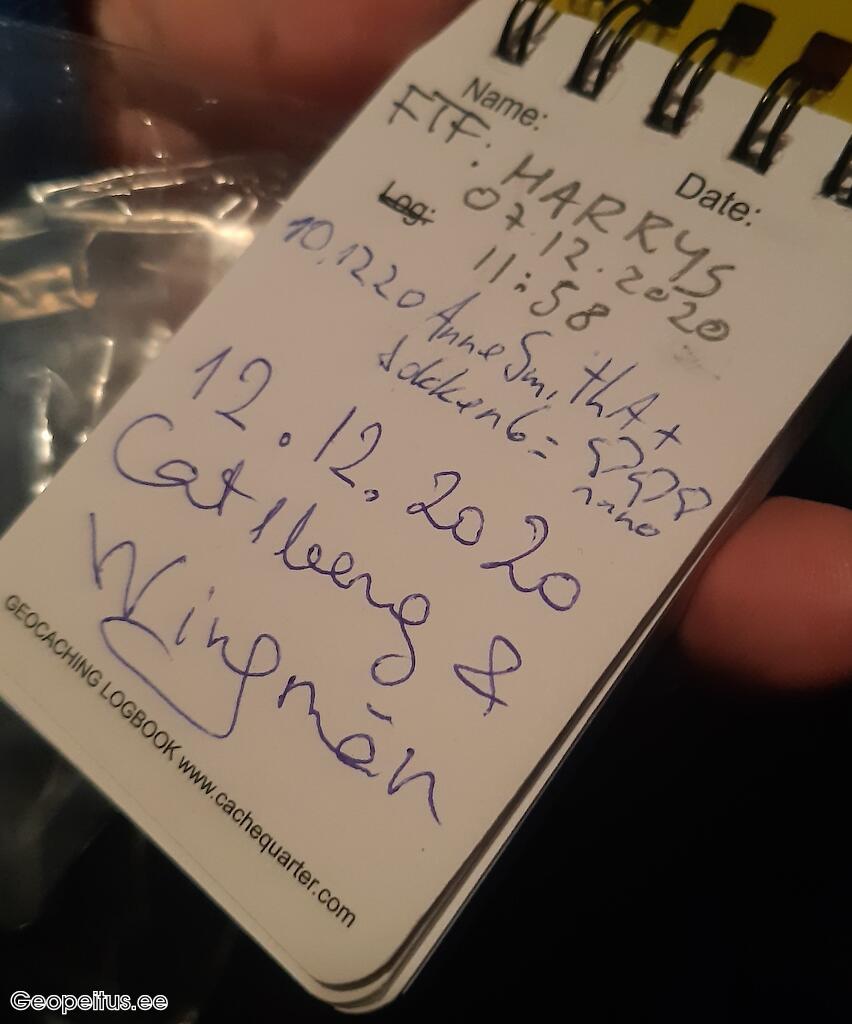 Name:
Date:
FTF: HARRYS
07.12.2020
11:58
Log:
10.12.20 AnneSmithA +
12.12.2020
Catsberg &
Wingmän
GEOCACHING LOGBOOK www.cachequarter.com
Geopeitus.ee